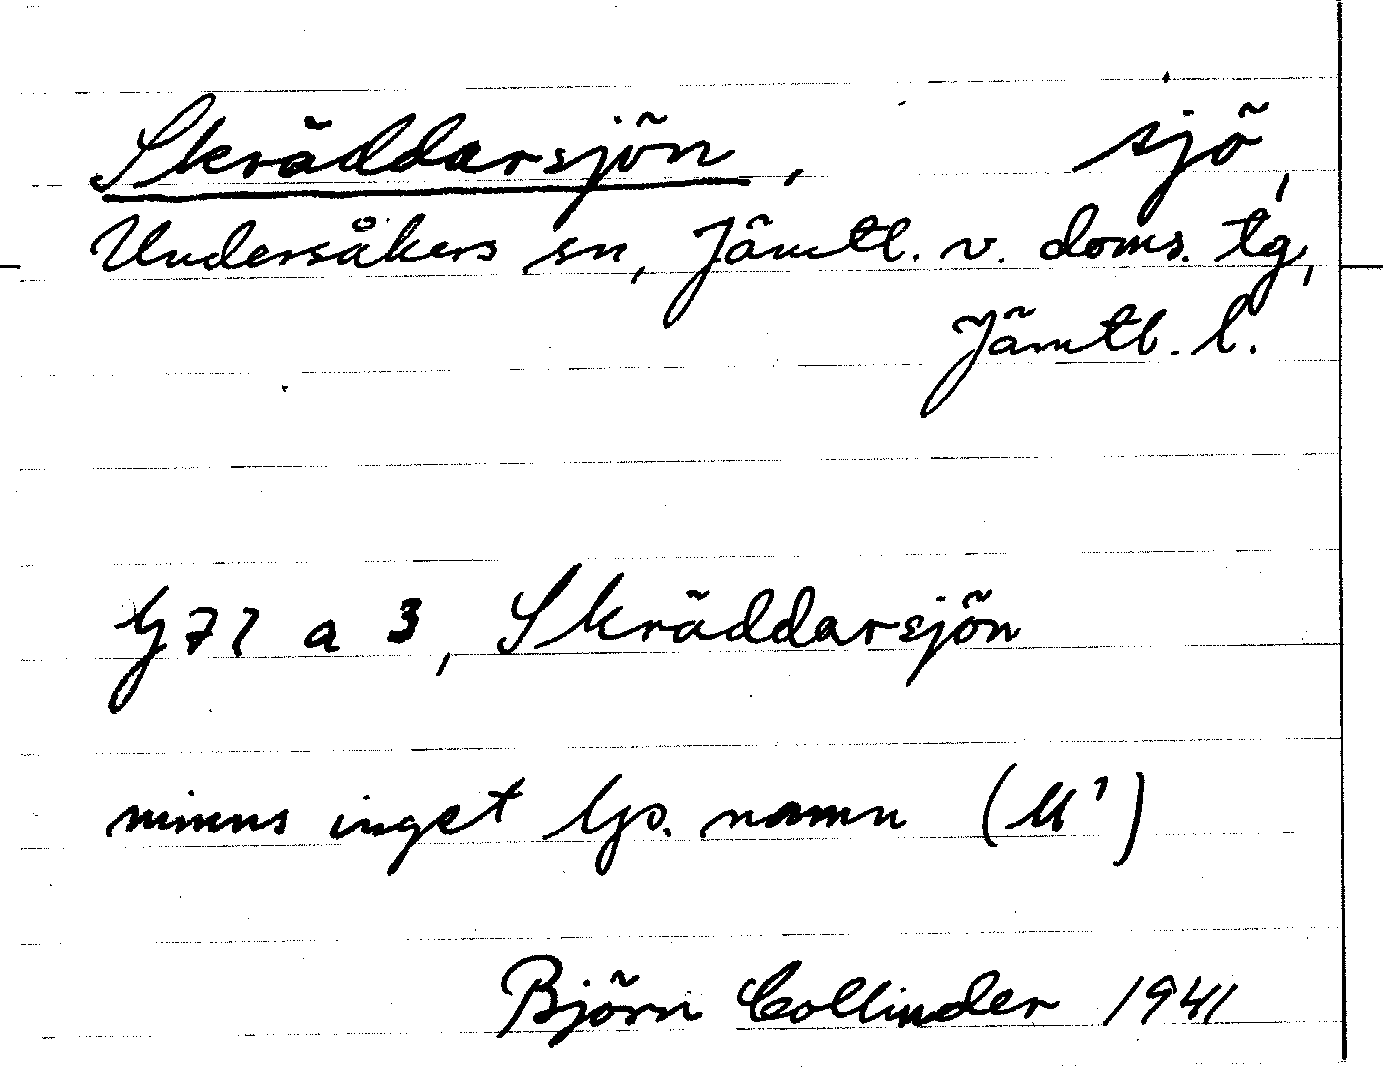 Skräddarsjön, sjö,
Undersåkers sn, Jämtl. v. doms. tg,
Jämtl. l.
G 72 a 3, Skräddarsjön
minns inget lp. namn (M¹)
Björn Collinder 1941